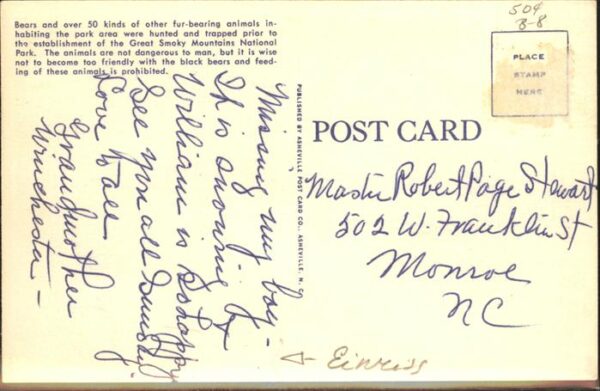 Bears and over 50 kinds of other fur-bearing animals in-
habiting the park area were hunted and trapped prior to
the establishment of the Great Smoky Mountains National
Park. The animals are not dangerous to man, but it is wise
not to become too friendly with the black bears and feed-
ing of these animals is prohibited.
Missing my boy -
It is snowing &
William is so happy
See you all Sunday.
Love to all
Grandmother
Winchester -
PUBLISHED BY ASHEVILLE POST CARD CO., ASHEVILLE, N. C.
POST CARD
504
B-8
PLACE
STAMP
HERE
Master Robert Page Stewart
502 W. Franklin St
Monroe
NC
Einriss